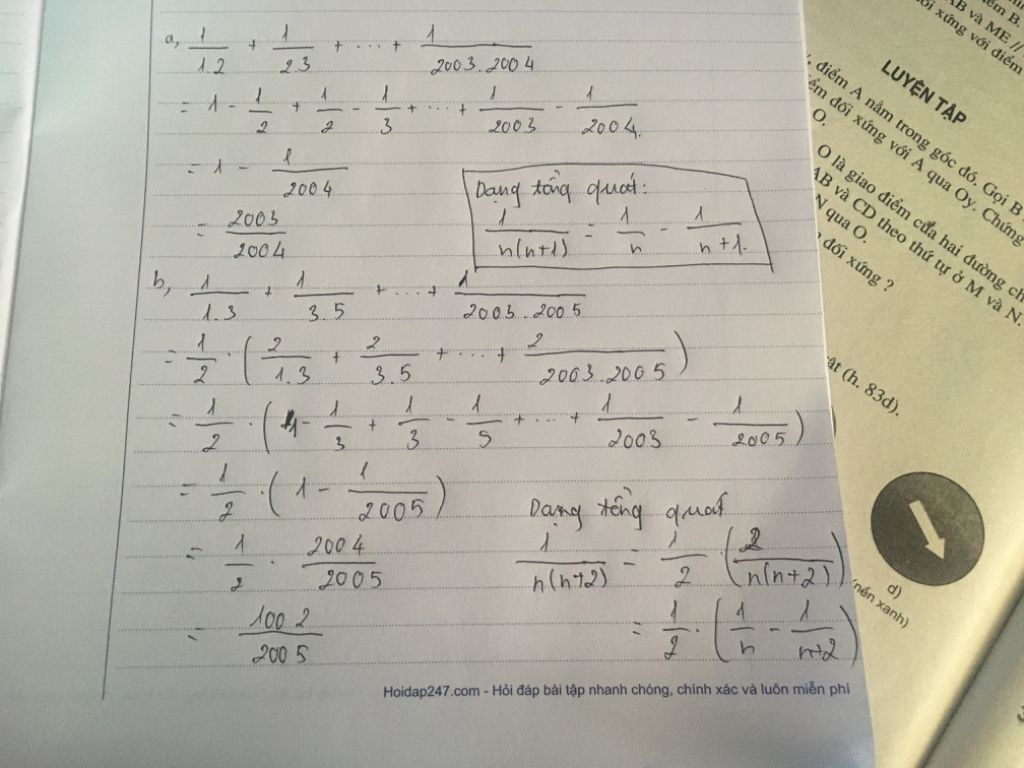 a, 1/1.2 + 1/2.3 + ... + 1/2003.2004
= 1 - 1/2 + 1/2 - 1/3 + ... + 1/2003 - 1/2004.
= 1 - 1/2004
= 2003/2004
Dạng tổng quát:
1/n(n+1) = 1/n - 1/n+1.
b, 1/1.3 + 1/3.5 + ... + 1/2003.2005
= 1/2 . (2/1.3 + 2/3.5 + ... + 2/2003.2005)
= 1/2 . (1 - 1/3 + 1/3 - 1/5 + ... + 1/2003 - 1/2005)
= 1/2 . (1 - 1/2005)
= 1/2 . 2004/2005
= 1002/2005
Dạng tổng quát
1/n(n+2) = 1/2 . (2/n(n+2))
= 1/2 . (1/n - 1/n+2)
Hoidap247.com - Hỏi đáp bài tập nhanh chóng, chính xác và luôn miễn phí
AB và ME //
đối xứng với điểm
LUYỆN TẬP
điểm A nằm trong góc đó. Gọi B
đối xứng với A qua Oy. Chứng
O.
O là giao điểm của hai đường
AB và CD theo thứ tự ở M và N.
N qua O.
đối xứng ?
(h. 83d).
d)
(nền xanh)